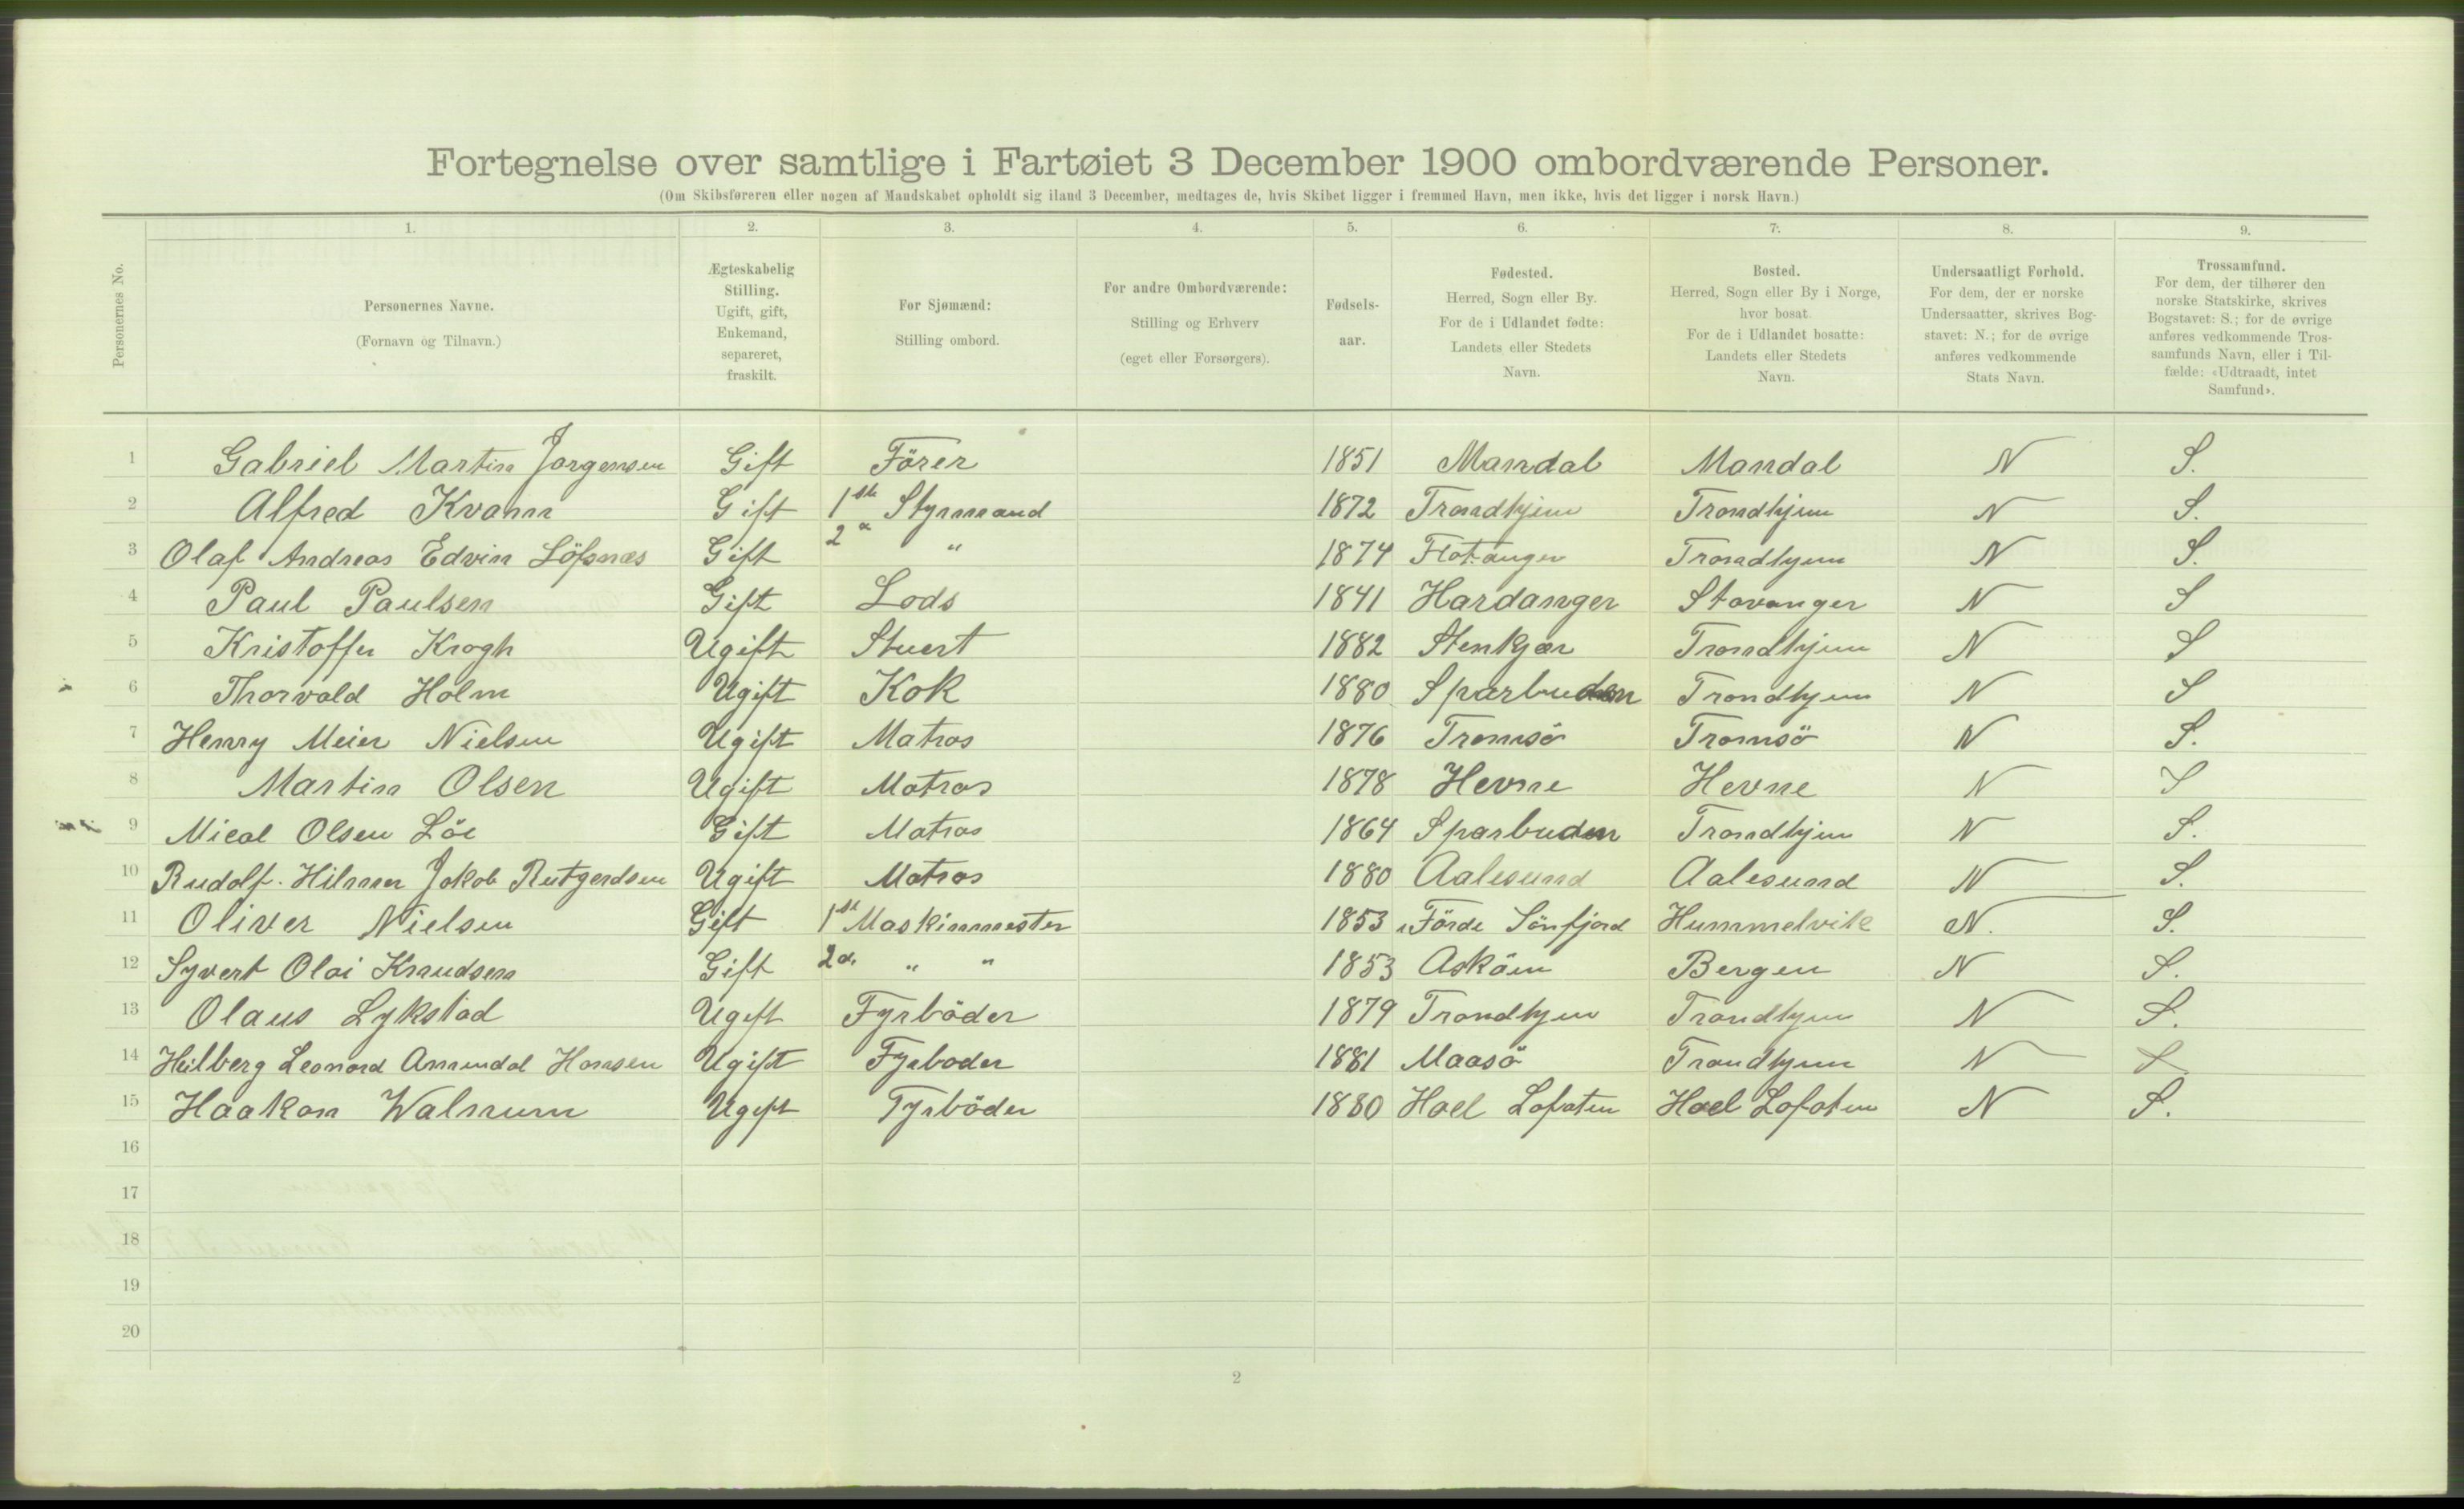 Fortegnelse over samtlige i Fartøiet 3 December 1900 ombordværende Personer.
(Om Skibsføreren eller nogen af Mandskabet opholdt sig iland 3 December, medtages de, hvis Skibet ligger i fremmed Havn, men ikke, hvis det ligger i norsk Havn.)
Personernes No.
1. 2. 3. 4. 5. 6. 7. 8. 9.
Personernes Navne.
(Fornavn og Tilnavn.)
Ægteskabelig
Stilling.
Ugift, gift,
Enkemand,
separeret,
fraskilt.
For Sjømænd:
Stilling ombord.
For andre Ombordværende:
Stilling og Erhverv
(eget eller Forsørgers).
Fødsels-
aar.
Fødested.
Herred, Sogn eller By.
For de i Udlandet fødte:
Landets eller Stedets
Navn.
Bosted.
Herred, Sogn eller By i Norge,
hvor bosat.
For de i Udlandet bosatte:
Landets eller Stedets
Navn.
Undersaatligt Forhold.
For dem, der er norske
Undersaatter, skrives Bog-
stavet: N.; for de øvrige
anføres vedkommende
Stats Navn.
Trossamfund.
For dem, der tilhører den
norske Statskirke, skrives
Bogstavet: S.; for de øvrige
anføres vedkommende Tros-
samfunds Navn, eller i Til-
fælde: «Udtraadt, intet
Samfund».
1 Gabriel Martin Jörgensen Gift Förer 1851 Mandal Mandal N S.
2 Alfred Kvam Gift 1ste Styrmand 1872 Trondhjem Trondhjem N S.
3 Olaf Andreas Edvin Löfsnæs Gift 2n " 1874 Flotanger Trondhjem N S.
4 Paul Paulsen Gift Lods 1841 Hardanger Stavanger N S
5 Kristoffer Krogh Ugift Stuert 1882 Stenkjær Trondhjem N S
6 Thorvald Holm Ugift Kok 1880 Sparbuden Trondhjem N S
7 Henry Meier Nielsen Ugift Matros 1876 Tromsö Tromsö N S.
8 Martin Olsen Ugift Matros 1878 Hevne Hevne N S
9 Micol Olsen Löe Gift Matros 1864 Sparbuden Trondhjem N S.
10 Rudolf Hilmer Jakob Rutgerdsen Ugift Matros 1880 Aalesund Aalesund N S.
11 Oliver Nielsen Gift 1st Maskinmester 1853 Förde Sönfjord Hummelvik N. S.
12 Syvert Olai Knudsen Gift 2d. " " 1853 Asköen Bergen N S.
13 Olaus Lykstad Ugift Fyrböder 1879 Trondhjem Trondhjem N S.
14 Heilberg Leonard Amundal Hansen Ugift Fyrboder 1881 Maasö Trondhjem N S
15 Haakon Walnum Ugift Fyrböder 1880 Hael Lofoten Hael Lofoten N S.
16
17
18
19
20
2